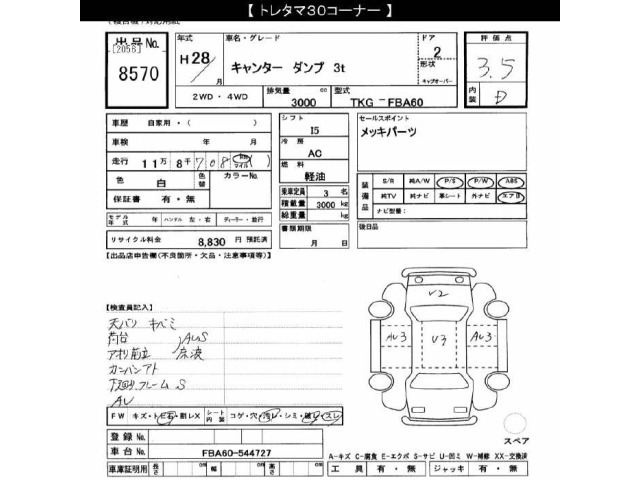 【 トレタマ30コーナー 】
出品No.
[2056]
8570
年式
H28/
月
車名・グレード
キャンター ダンプ 3t
ドア
2
形状
キャブオーバー
評価点
3.5
内装
D
2WD・4WD
排気量
3000
cc
型式
TKG-FBA60
車歴 自家用・( )
車検 年 月
走行 11万8千708
色 白
色替
カラーNo.
保証書 有・無
シフト
I5
冷房
AC
燃料
軽油
乗車定員 3 名
積載量 3000 kg
総重量 kg
書類期限
月 日
セールスポイント
メッキパーツ
装備品
S/R 純A/W P/S P/W ABS
純TV 純ナビ 革シート 外ナビ エアB
ナビ型番:
後日品
モデル年式 年 ハンドル 左・右 ディーラー・並行
リサイクル料金 8,830 円 預託済
【出品店申告欄(不良箇所・欠品・注意事項等)】
【検査員記入】
天バリ キバミ
荷台
AUS
アオリ前立
凉波
カンバンアト
下廻り.フレーム S
AU
V2
AU3
V3
AU3
スペア
FW キズ・トビ石・割レX
シート内装
コゲ・穴・汚レ・シミ・破レ・スレ
登録No.
車台No.
FBA60-544727
車庫証明用 長さ cm 幅 cm 高さ cm
A-キズ C-腐食 E-エクボ S-サビ U-凹ミ W-補修 XX-交換済
工具 有・無 ジャッキ 有・無